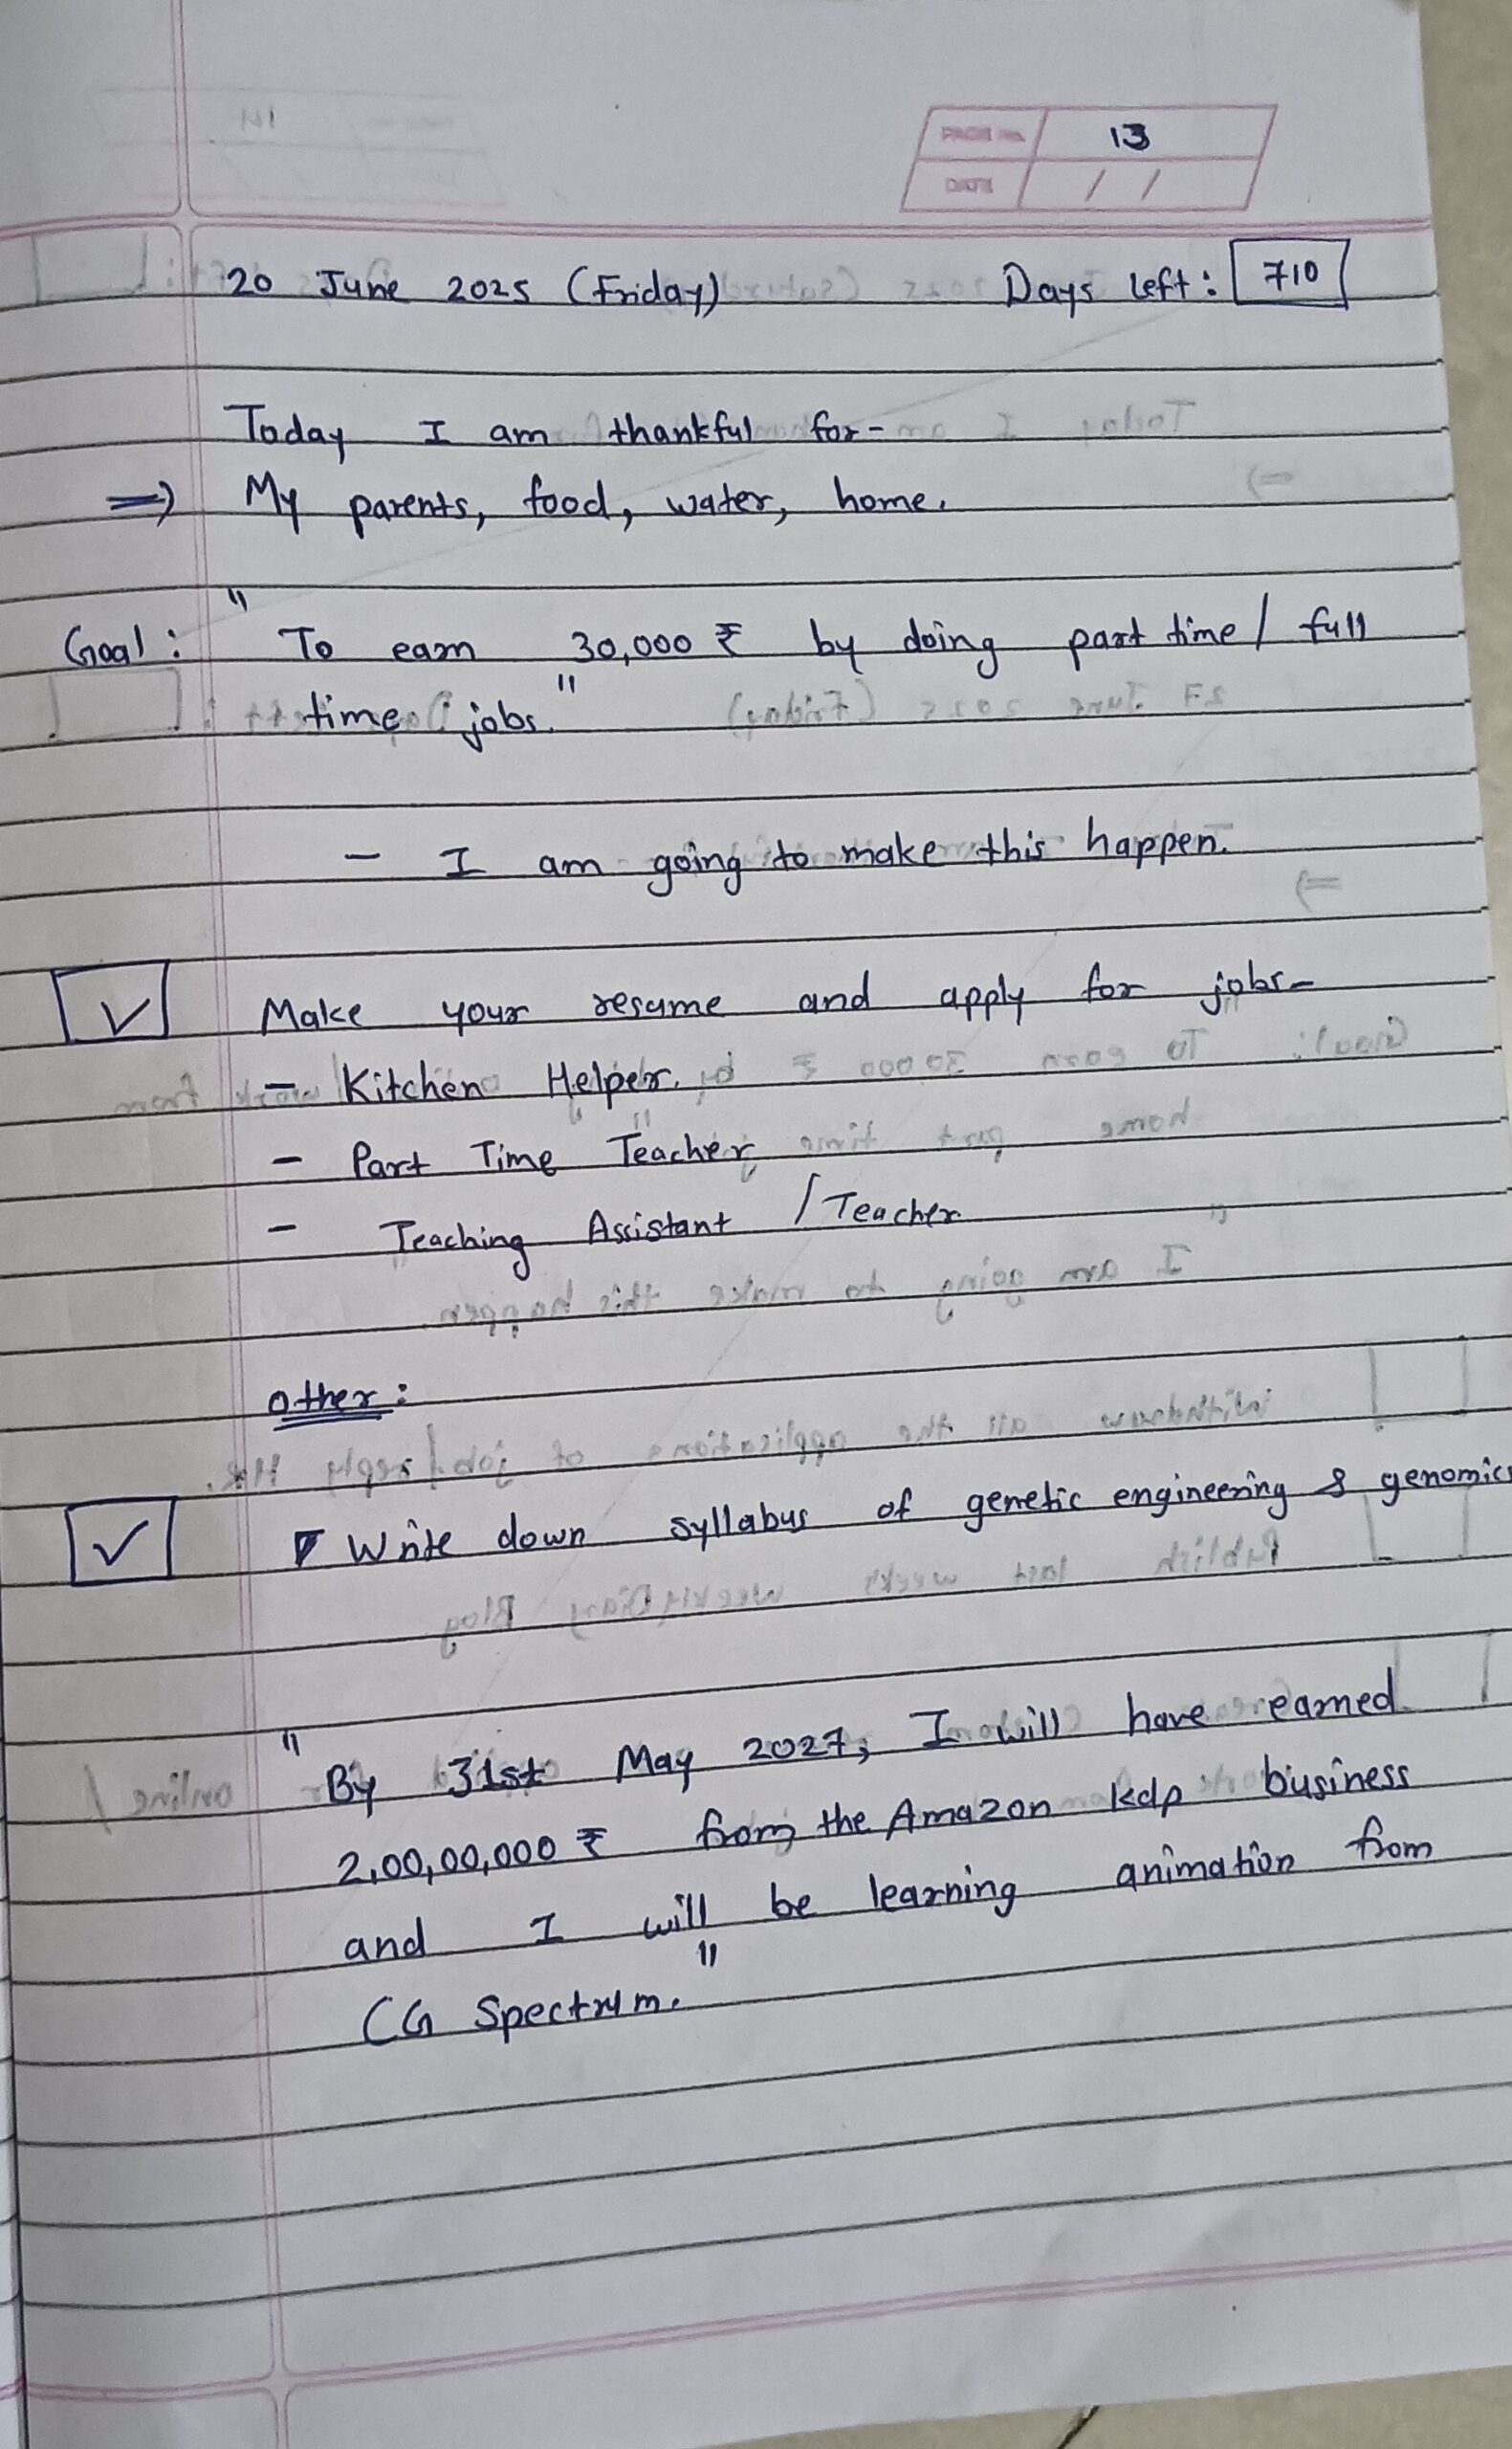 PAGE No. 13
DATE / /
20 June 2025 (Friday) Days left: 710
Today I am thankful for-
⇒ My parents, food, water, home.
Goal: "To earn 30,000 ₹ by doing part time / full
time jobs."
- I am going to make this happen.
✓ Make your resume and apply for jobs-
- Kitchen Helper.
- Part Time Teacher
- Teaching Assistant / Teacher
Other:
✓ Write down syllabus of genetic engineering & genomics
"By 31st May 2027, I will have earned
2,00,00,000 ₹ from the Amazon kdp business
and I will be learning animation from
CG Spectrum."